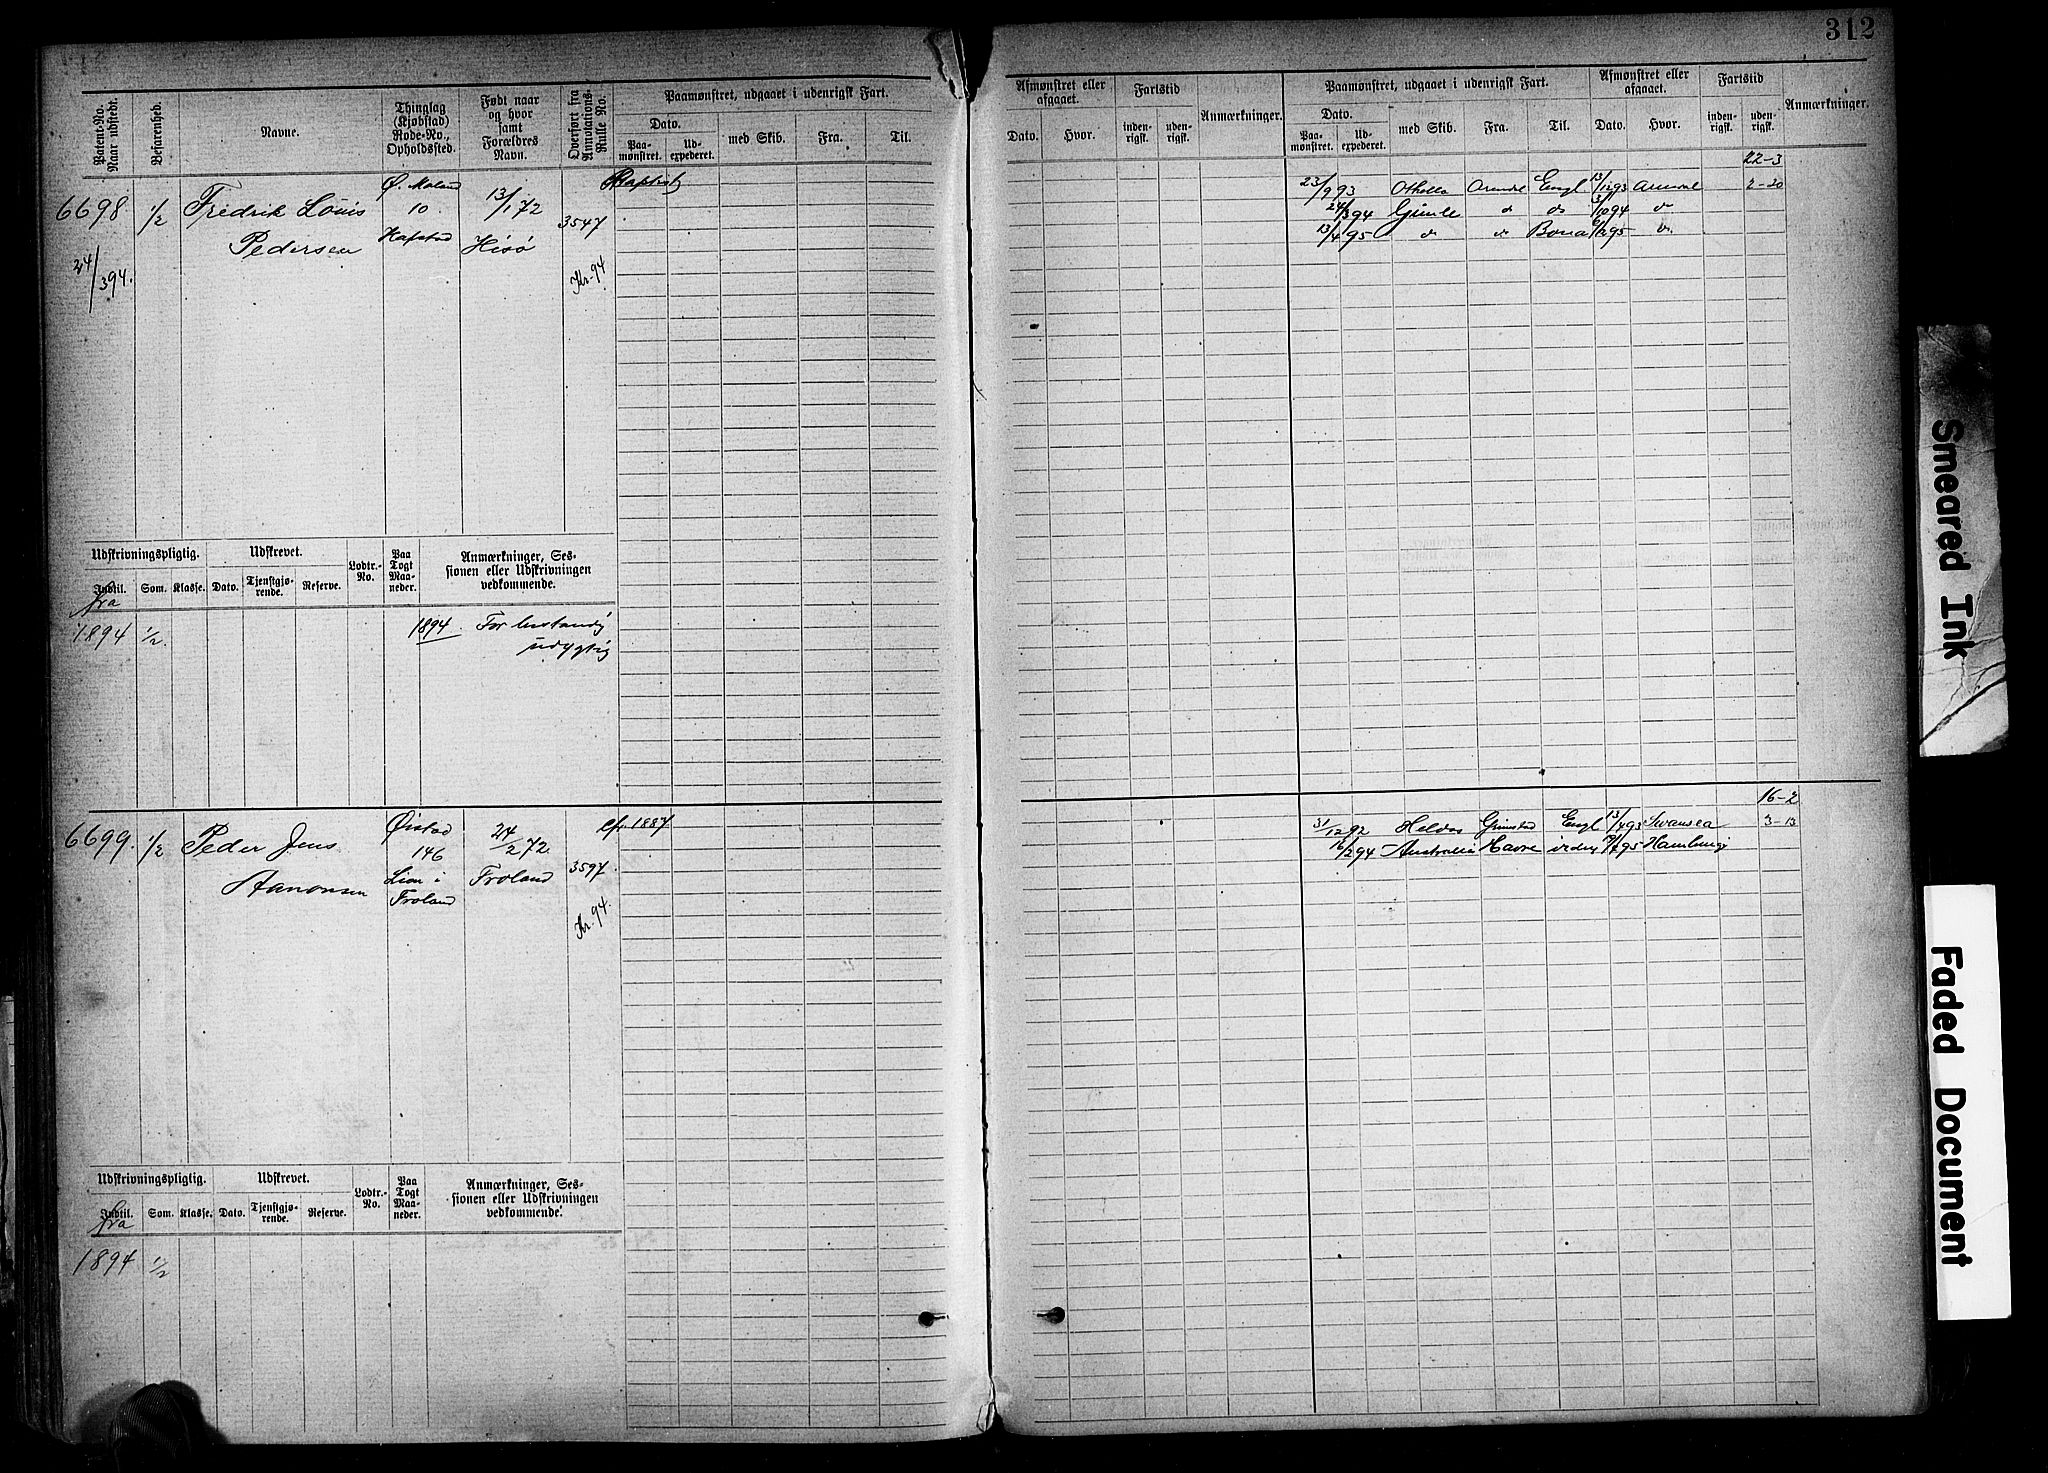 312
Patent-No. Naar udstedt.
Befarenhed.
Navne.
Thinglag (Kjøbstad) Rode-No., Opholdssted.
Født naar og hvor samt Forældres Navn.
Overført fra Annotations-Rulle No.
Paamønstret, udgaaet i udenrigsk Fart.
Dato.
Paa-mønstret.
Ud-expederet.
med Skib.
Fra.
Til.
Afmønstret eller afgaaet.
Dato.
Hvor.
Fartstid
inden-rigsk.
uden-rigsk.
Anmærkninger.
Paamønstret, udgaaet i udenrigsk Fart.
Dato.
Paa-mønstret.
Ud-expederet.
med Skib.
Fra.
Til.
Afmønstret eller afgaaet.
Dato.
Hvor.
Fartstid
inden-rigsk.
uden-rigsk.
Anmærkninger.
22-3
6698. 1/2 Fredrik Louis Pedersen
24/3 94.
Ø. Moland
10
Hafstad
13/1 72
Hisø
3547
Kr. 94
Baptist
23/9 93 Othello Arendal Engl 13/12 93 Arendal 2-20
24/3 94 Gimle d d 3/10 94 d
13/4 95 d d Bona 95 d
Udskrivningspligtig.
Udskrevet.
Lodtr.-No.
Paa Togt Maa-neder.
Anmærkninger, Ses-sionen eller Udskrivningen vedkommende.
Indtil. Som. Klasse. Dato. Tjenstgjø-rende. Reserve.
fra
1894 1/2. 1894. For bestandig
udygtig
16-2
6699. 1/2 Peder Jens Aanonsen
Øistad
146
Lien i
Froland
24/2 72.
Froland
3597.
Kr. 94.
Cfr. 1887
31/12 92 Heldos Grimstad Engl 13/4 93 Swansea 3-13
16/2 94 Australia Havre 95 Hamburg
Udskrivningspligtig.
Udskrevet.
Lodtr.-No.
Paa Togt Maa-neder.
Anmærkninger, Ses-sionen eller Udskrivningen vedkommende.
Indtil. Som. Klasse. Dato. Tjenstgjø-rende. Reserve.
fra
1894 1/2
Smeared Ink
Faded Document